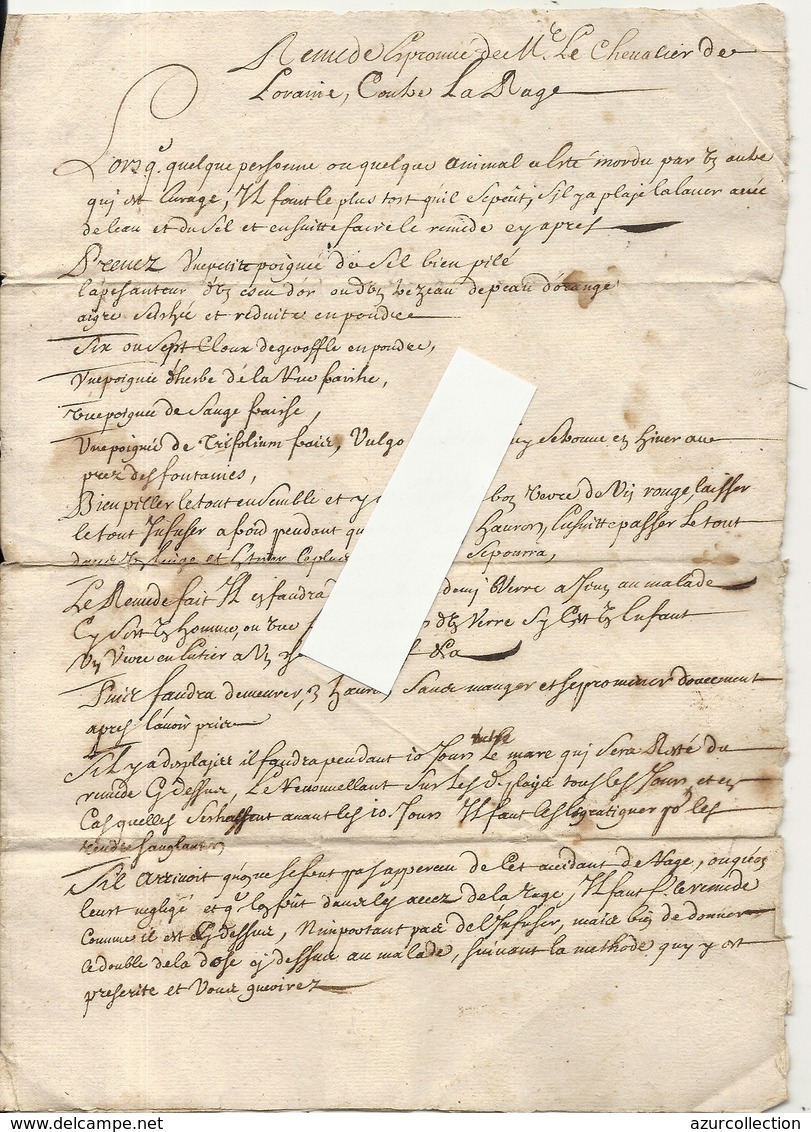 Remede Eprouvé de Mr. Le Chevalier de
Loraine, Contre La Rage
Lorsq. quelque personne ou quelque animal a esté mordu par un autre
qui est enragé, Il faut le plus tost quil se peut, Sil y a plaje la laver avec
de leau et du Sel et ensuitte faire le remede cy apres
Prenez Une petitte poignée de Sel bien pilé
La pesanteur dun escu dor ou dun de peau dorange
aigre Seichée et reduitte en poudre
Six ou Sept Cloux de gerofle en poudre,
Une poignée dherbe de la Rue fraiche,
Une poignée de Sauge fraiche,
Une poignée de Trifolium frais, Vulgo quy se trouve en hiver aux
prez des fontaines,
Bien piller le tout ensemble et y bon verre de Vin rouge, laisser
le tout Infuser a froid pendant heures, Ensuitte passer Le tout
dans un linge et se pourra,
Le Remede fait Il en faudra demj Verre a Jeun au malade
Cy Sest un homme, ou une dun Verre Sy Cest un Enfant
Un Verre entier a Un
Puis faudra demeurer 3 heures Sans manger et se promener doucement
apres lavoir prise
Sil y a des plajes il faudra pendant 10 Jours mettre Le marc qui Sera Resté du
remede Cy dessus, Le Renouvellant Sur les d. plajes tous les Jours et en
Cas quelles Serhassent avant les 10. Jours Il faut les Egratigner pr. les
rendre sanglantes
Sil arrivoit quon ne se feut pas apperceu de Cet accidant de Rage, ou quon
leust negligé et q. lon fût dans les accez de la rage, Il faut f. le remede
Comme il est Cy dessus, Nimportant pas de lInfuser, mais bien de donner
le double de la dose cy dessus au malade, suivant la methode quy y est
prescrite et Vous guerirez
azurcollection